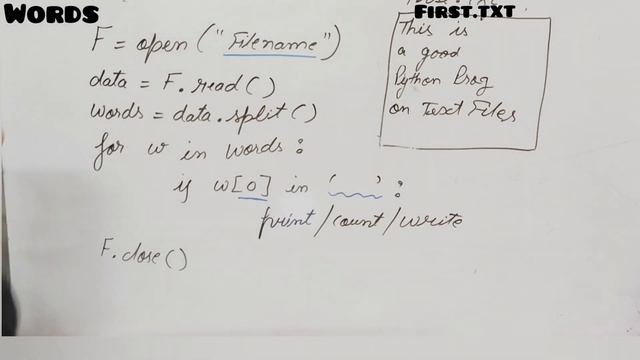 WORDS
F = open ("Filename")
data = F.read()
words = data.split()
for w in words :
if w[0] in '   ' :
print/count/write
F.close()
FIRST.TXT
This is
a good
Python Prog
on Text Files